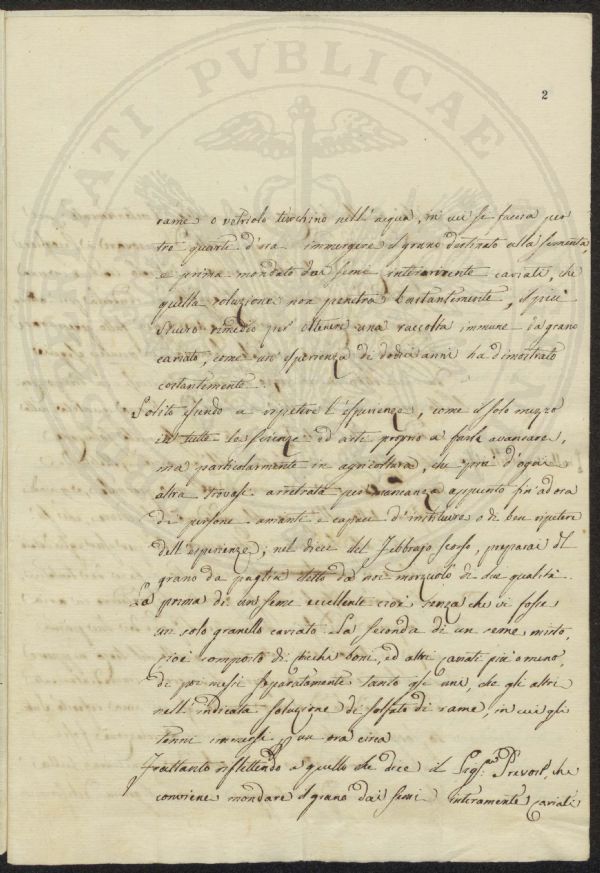 PVBLICAE
2
rame o vetriolo turchino nell' acqua, in cui si faceva per
tre quarti d'ora immergere il grano destinato alla sementa,
e prima mondato dai semi interamente cariati, che
quella soluzione non penetra bastantemente, il più
sicuro remedio per ottenere una raccolta immune da grano
cariato, come un' esperienza di dodici anni ha dimostrato
costantemente.
Solito essendo a ripetere l'esperienze, come il solo mezzo
in tutte le scienze ed arti proprio a farle avanzare,
ma particolarmente in agricoltura, che più d'ogni
altra trovasi arretrata per mancanza appunto fin' ad ora
di persone amanti e capaci d'instituire o di ben ripetere
dell' esperienze; nel dieci del Febbrajo scorso, preparai il
grano da paglia detto da noi marzuolo di due qualità.
La prima di un seme eccellente cioè senza che vi fosse
un solo granello cariato. La seconda di un seme misto,
cioè composto di picchi boni, ed altri cariati più o meno,
di poi mesi separatamente tanto gli uni, che gli altri
nell' indicata soluzione di solfato di rame, in cui gli
tenni immersi per un ora circa
Frattanto riflettendo a quello che dice il Sig.r Prevost, che
conviene mondare il grano dai semi interamente cariati